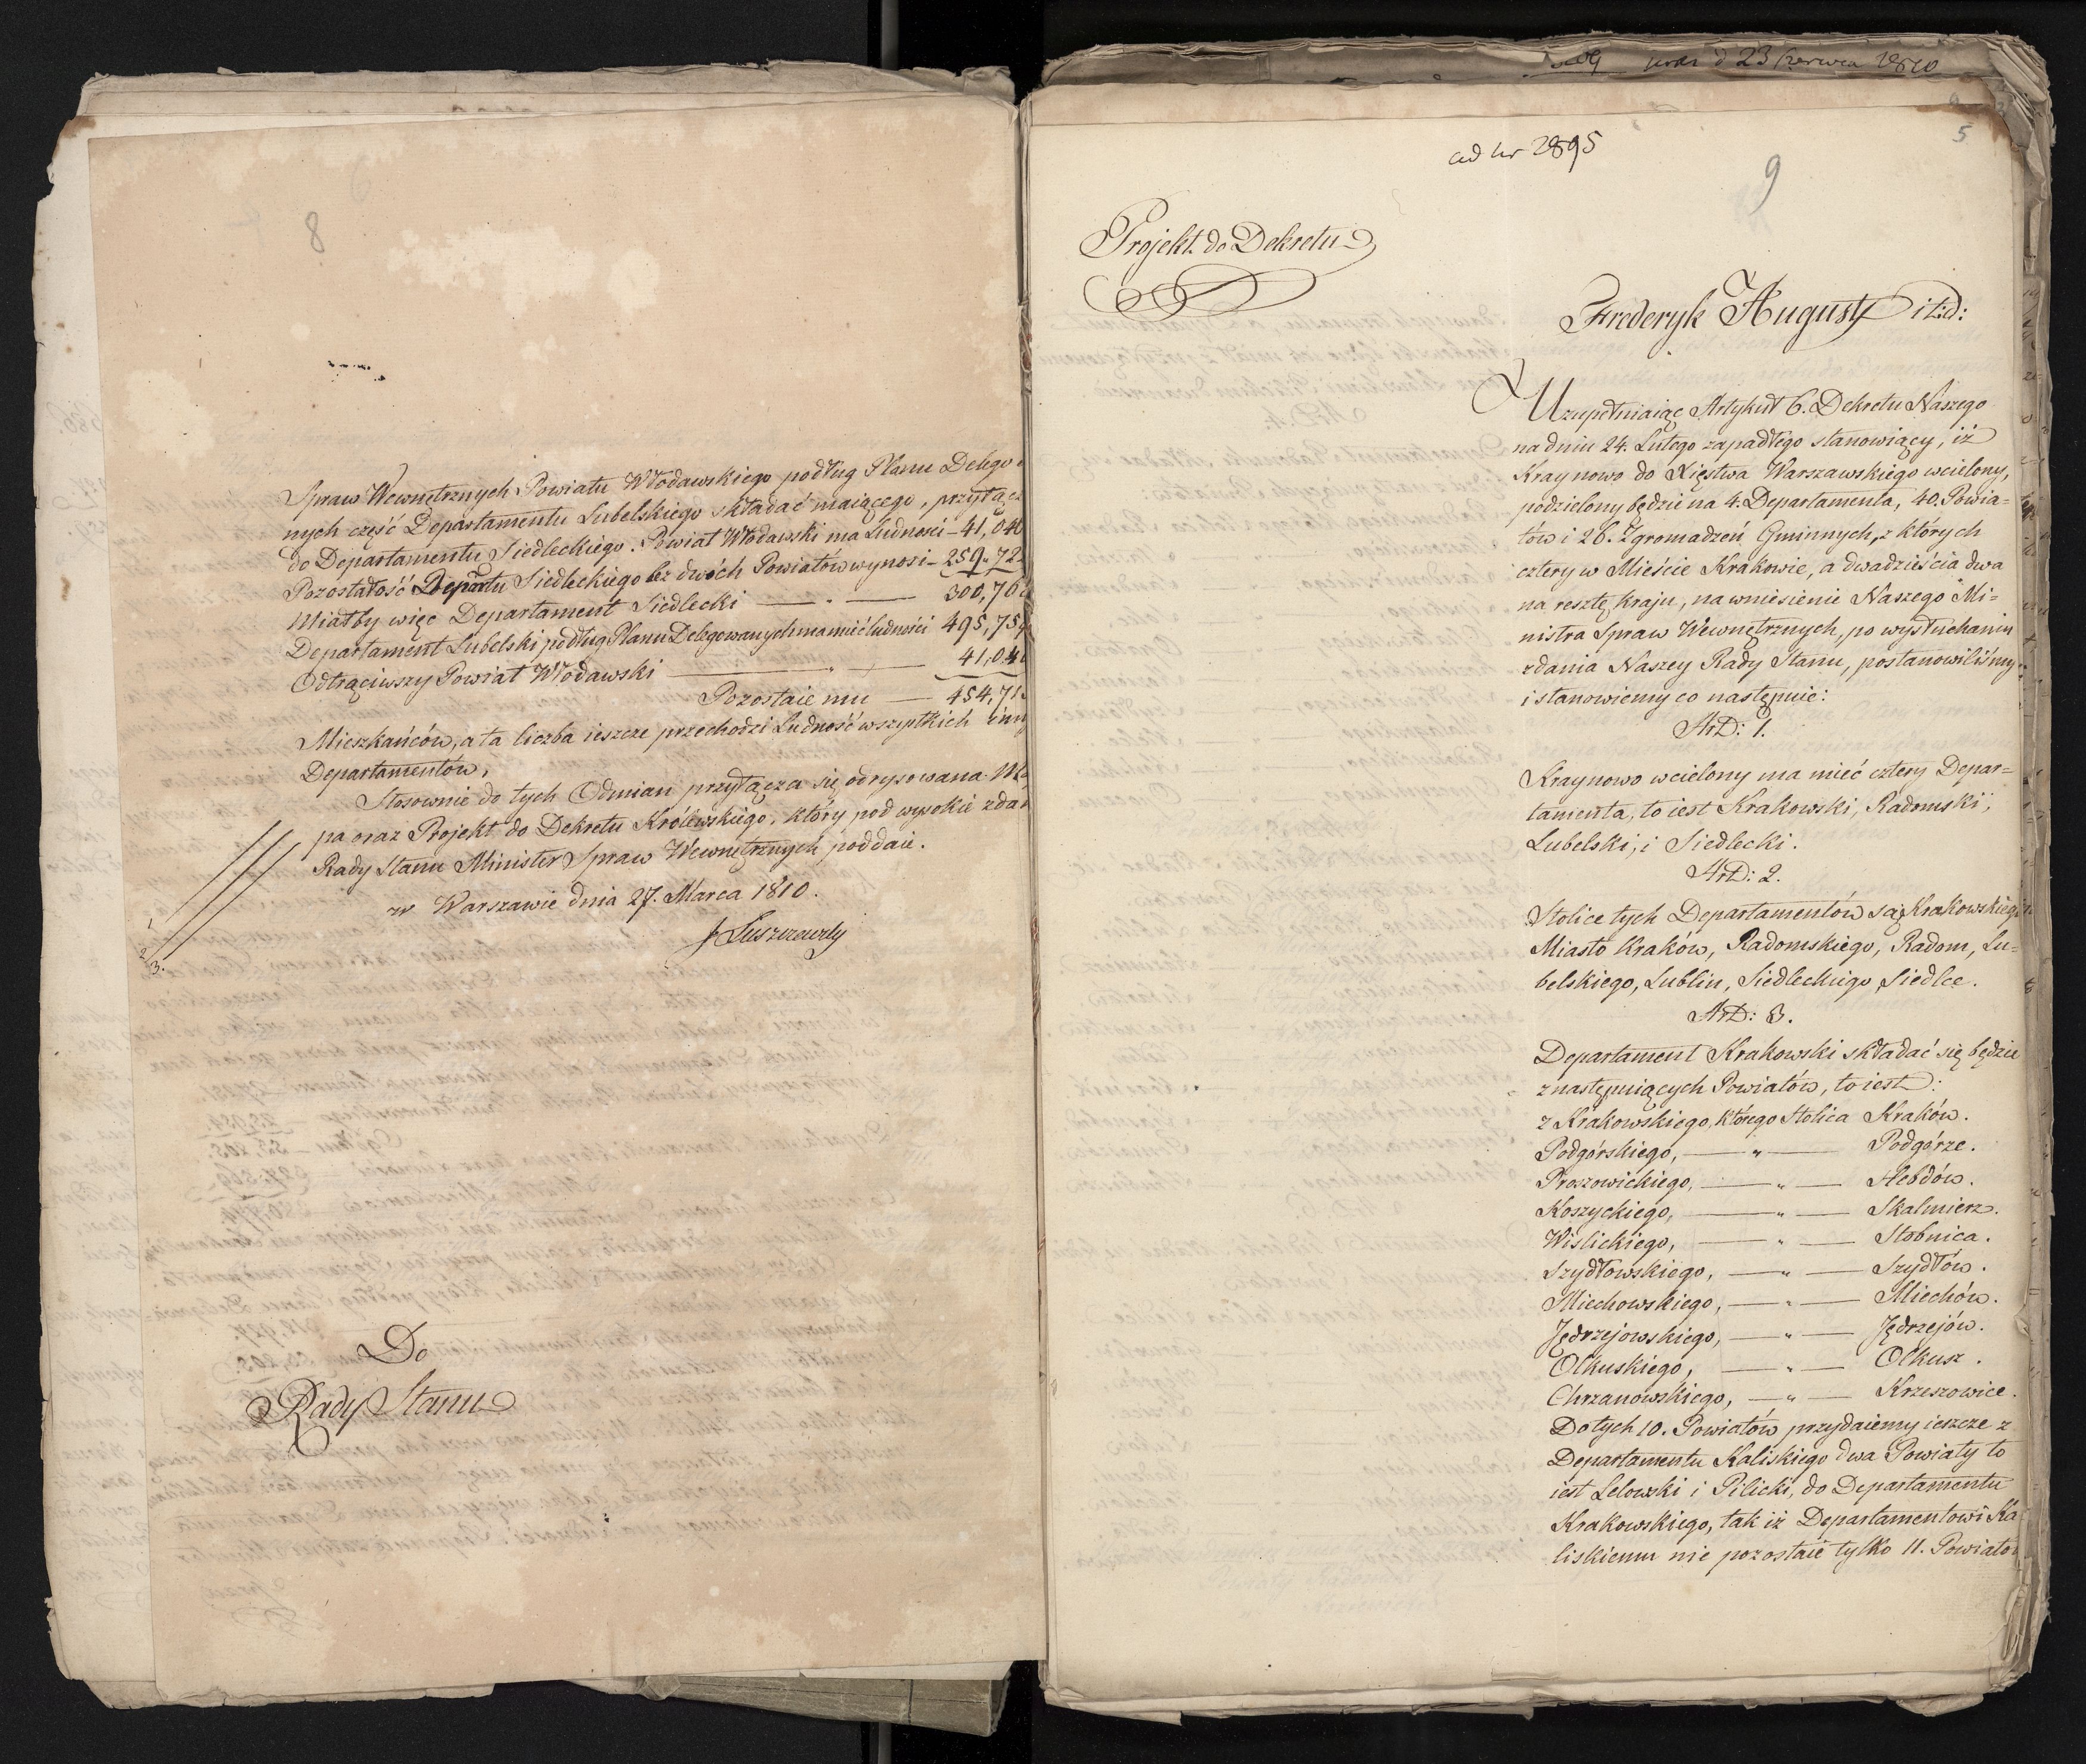 8
Spraw Wewnętrznych Powiatu Włodawskiego podług Planu Delego
nych część Departamentu Lubelskiego składać maiącego, przyłącz
do Departamentu Siedleckiego. Powiat Włodawski ma Ludności – 41,040
Pozostałość Departu Siedleckiego bez dwóch Powiatów wynosi – 259,72
Miałby więc Departament Siedlecki — " — 300,76
Departament Lubelski podług Planu Delegowanych ma mieć ludności 495,75
Odtrąciwszy Powiat Włodawski — " — 41,04
Pozostaie mu — 454,71
Mieszkańców, a ta liczba ieszcze przechodzi Ludność wszystkich inny
Departamentów.
Stosownie do tych Odmian przyłącza się odrysowana Ma
pa oraz Projekt do Dekretu Królewskiego, który pod wysokie zda
Rady Stanu Minister Spraw Wewnętrznych poddaie.
w Warszawie dnia 27. Marca 1810.
J Łuszczewski
1
2
3.
Do
Rady Stanu
d 23 Czerwca 1810
5
ad nr 2895
9
Projekt do Dekretu
Frederyk August itd:
Uzupełniaiąc Artykuł 6. Dekretu Naszego
na dniu 24. Lutego zapadłego stanowiący, iż
Kray nowo do Xięstwa Warszawskiego wcielony,
podzielony będzie na 4. Departamenta, 40. Powia=
tów i 26. Zgromadzeń Gminnych, z których
cztery w Mieście Krakowie, a dwadzieścia dwa
na resztę kraju, na wniesienie Naszego Mi=
nistra Spraw Wewnętrznych, po wysłuchaniu
zdania Naszey Rady Stanu, postanowiliśmy
i stanowiemy co następuie:
Art: 1.
Kray nowo wcielony ma mieć cztery Depar=
tamenta, to iest Krakowski, Radomski,
Lubelski, i Siedlecki.
Art: 2.
Stolice tych Departamentów są, Krakowskiego
Miasto Kraków, Radomskiego, Radom, Lu=
belskiego, Lublin, Siedleckiego Siedlce.
Art: 3.
Departament Krakowski składać się będzie
z następuiących Powiatów, to iest:
z Krakowskiego, którego Stolica Kraków.
Podgórskiego, — " — Podgórze.
Proszowickiego, — " — Hebdów.
Koszyckiego, — " — Skalmierz.
Wiślickiego, — " — Stobnica.
Szydłowskiego, — " — Szydłów.
Miechowskiego, — " — Miechów.
Jędrzejowskiego, — " — Jędrzejów.
Olkuskiego, — " — Olkusz.
Chrzanowskiego, — " — Krzeszowice.
Do tych 10. Powiatów przydaiemy ieszcze z
Departamentu Kaliskiego dwa Powiaty to
iest Lelowski i Pilicki, do Departamentu
Krakowskiego, tak iż Departamentowi Ka
liskiemu nie pozostaie tylko 11. Powiatów